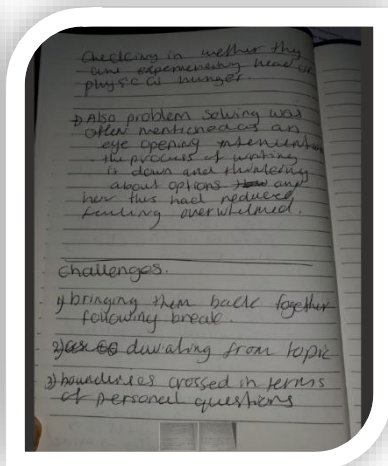 Checking in wether thy
are experiencing head or
physical hunger.
Also problem solving was
often mentioned as an
eye opening
the process of writing
it down and thinking
about options and
how this had reduced
feeling overwhelmed.
Challenges.
1) bringing them back together
following break.
2) deviating from topic
3) bounderies crossed in terms
of personal questions